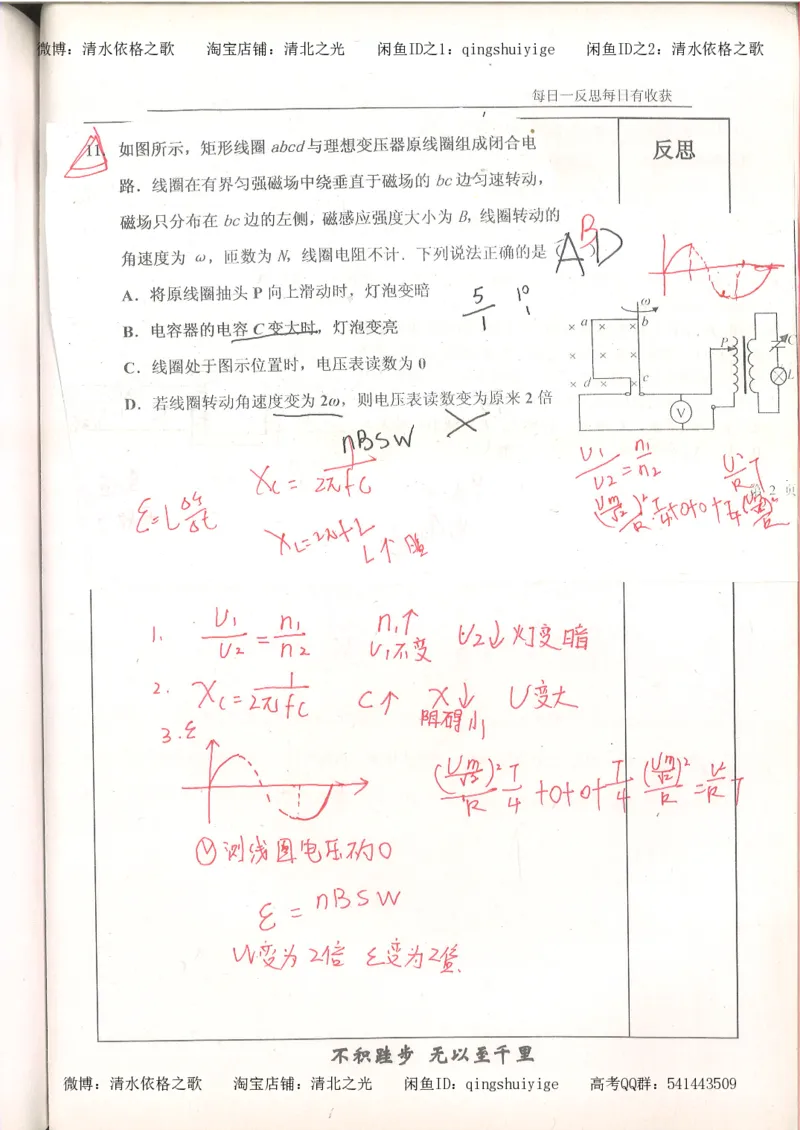 微博：清水依格之歌 淘宝店铺：清北之光 闲鱼ID之1：qingshuiyige 闲鱼ID之2：清水依格之歌
每日一反思每日有收获
反思
11. 如图所示，矩形线圈 abcd 与理想变压器原线圈组成闭合电
路．线圈在有界匀强磁场中绕垂直于磁场的 bc 边匀速转动，
磁场只分布在 bc 边的左侧，磁感应强度大小为 B，线圈转动的
角速度为 ω，匝数为 N，线圈电阻不计．下列说法正确的是（ ）
ABD
A．将原线圈抽头 P 向上滑动时，灯泡变暗
5/1 10/1
B．电容器的电容 C 变大时，灯泡变亮
C．线圈处于图示位置时，电压表读数为 0
D．若线圈转动角速度变为 2ω，则电压表读数变为原来 2 倍
ω
a b
d c
P
C
L
V
nBSW
U1/U2=n1/n2
Xc=1/2πfc
U²/R T
ε=L
XL=2πfL
L↑ 阻
第 2 页
1. U1/U2=n1/n2 n1↑ U1不变 U2↓ 灯变暗
2. Xc=1/2πfc C↑ X↓ 阻碍小 U变大
3. ε
(Um/√2)²/R T/4+0+0+T/4 (Um/√2)²/R=U²/R T
Ⓥ测线圈电压不为0
ε=nBSW
W变为2倍 ε变为2倍
不积跬步 无以至千里
微博：清水依格之歌 淘宝店铺：清北之光 闲鱼ID：qingshuiyige 高考QQ群：541443509